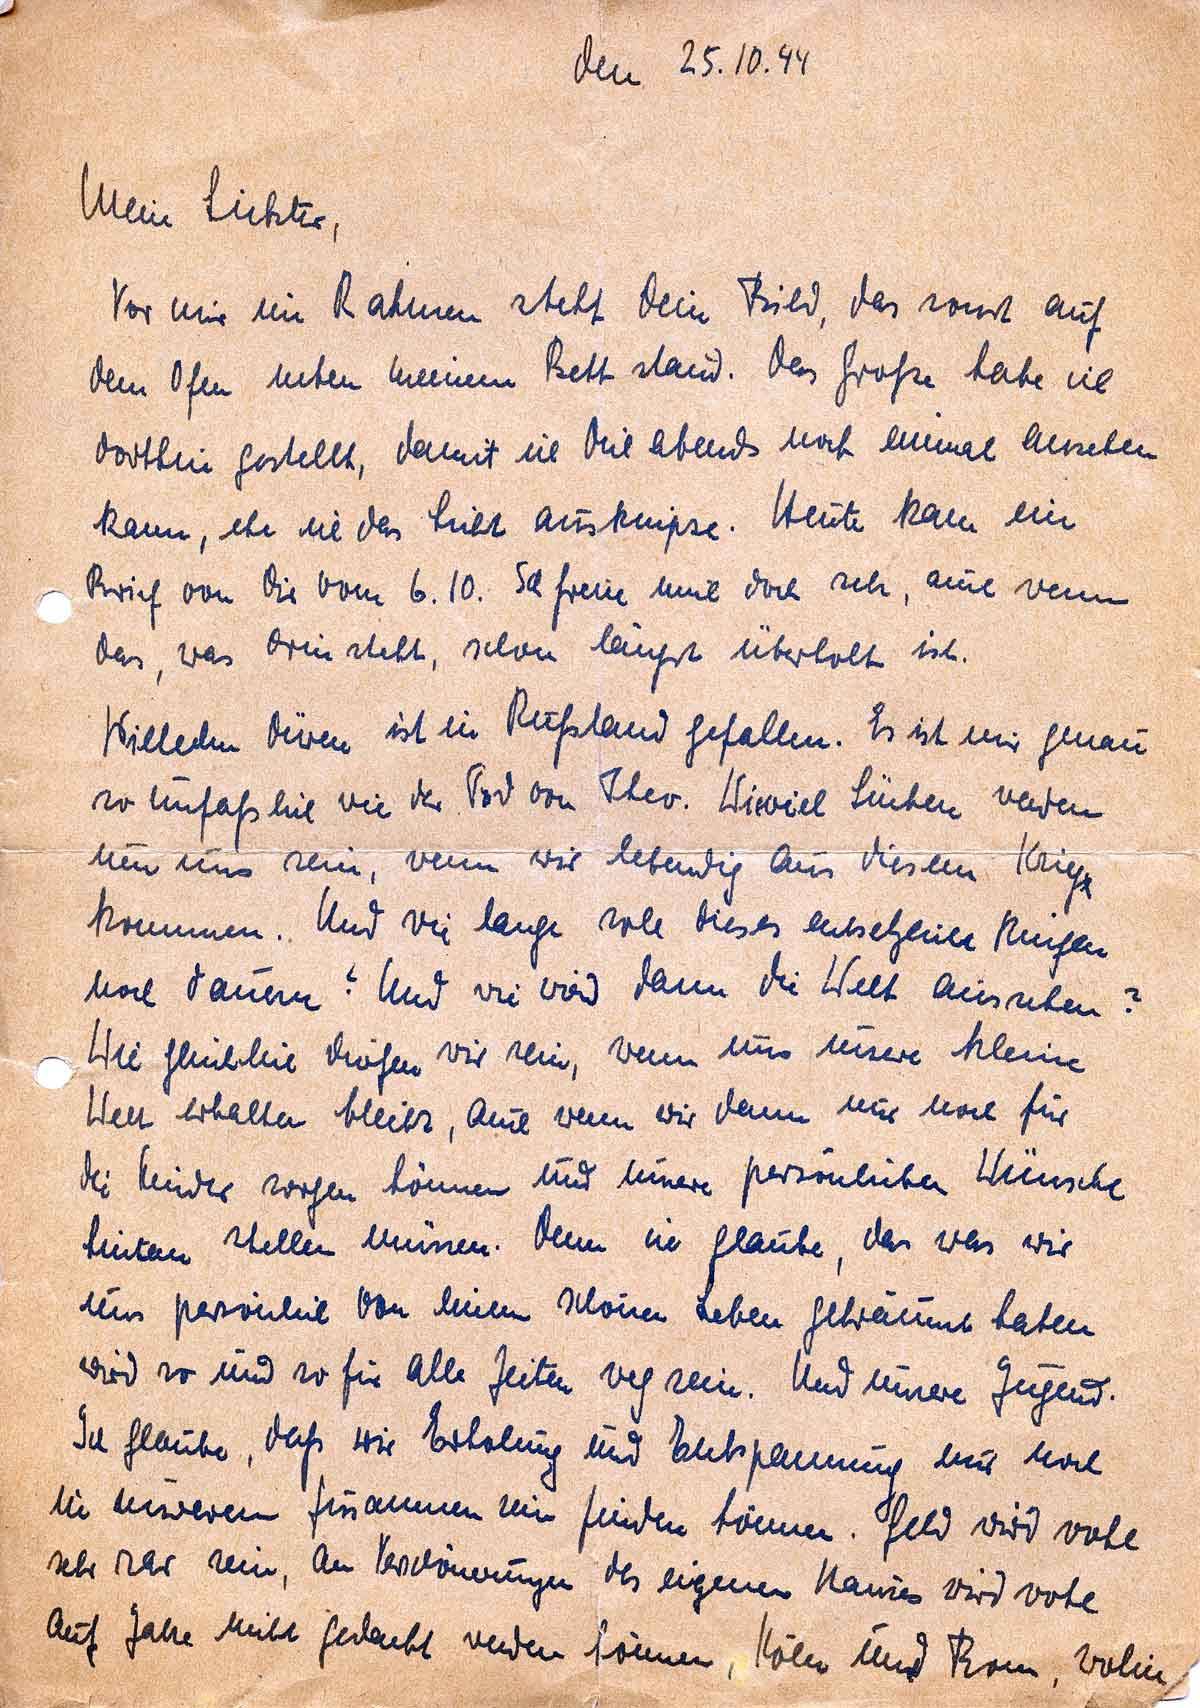 den 25.10.44
Mein Liebster,
Vor mir im Rahmen steht Dein Bild, das sonst auf
dem Ofen neben meinem Bett stand. Das große habe ich
dorthin gestellt, damit ich Dich abends noch einmal ansehen
kann, ehe ich das Licht ausknipse. Heute kam ein
Brief von Dir vom 6.10. Ich freue mich doch sehr, auch wenn
das, was drin steht, schon längst überholt ist.
Düren ist in Rußland gefallen. Es ist mir genau
so unfaßlich wie der Tod von Theo. Wieviel Lücken werden
um uns sein, wenn wir lebendig aus diesem Kriege
kommen. Und wie lange soll dieses entsetzliche Ringen
noch dauern? Und wie wird dann die Welt aussehen?
Wie glücklich dürfen wir sein, wenn uns unsere kleine
Welt erhalten bleibt, auch wenn wir dann nur noch für
die Kinder sorgen können und unsere persönlichen Wünsche
hintan stellen müssen. Denn ich glaube, das was wir
uns persönlich von einem schönen Leben geträumt haben
wird so und so für alle Zeiten weg sein. Und unsere Jugend.
Ich glaube, daß wir Erholung und Entspannung nur noch
in unserem Zusammen sein finden können. Geld wird wohl
sehr rar sein, an Verschönerungen des eigenen Hauses wird wohl
auf Jahre nicht gedacht werden können, Köln und Bonn, wohin